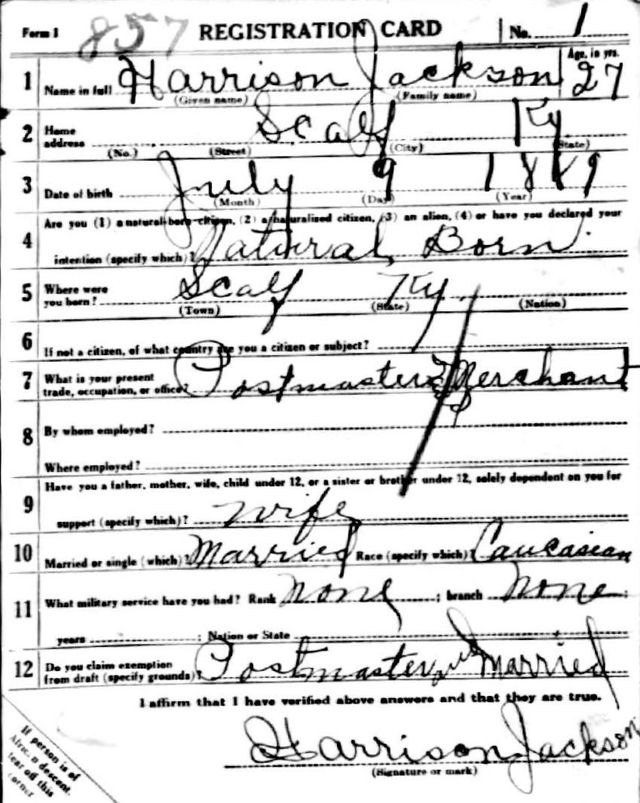 Form 1 857 REGISTRATION CARD No. 1
1 Name in full Harrison Jackson Age, in yrs. 27
(Given name) (Family name)
2 Home address Scalf Ky
(No.) (Street) (City) (State)
3 Date of birth July 9 1889
(Month) (Day) (Year)
4 Are you (1) a natural-born citizen, (2) a naturalized citizen, (3) an alien, (4) or have you declared your
intention (specify which)? Natural Born
5 Where were you born? Scalf Ky
(Town) (State) (Nation)
6 If not a citizen, of what country are you a citizen or subject?
7 What is your present trade, occupation, or office? Postmaster & Merchant
8 By whom employed?
Where employed?
9 Have you a father, mother, wife, child under 12, or a sister or brother under 12, solely dependent on you for
support (specify which)? wife
10 Married or single (which)? Married Race (specify which)? Caucasian
11 What military service have you had? Rank none ; branch none ;
years ; Nation or State
12 Do you claim exemption from draft (specify grounds)? Postmaster Married
I affirm that I have verified above answers and that they are true.
Harrison Jackson
(Signature or mark)
If person is of
African descent,
tear off this
corner